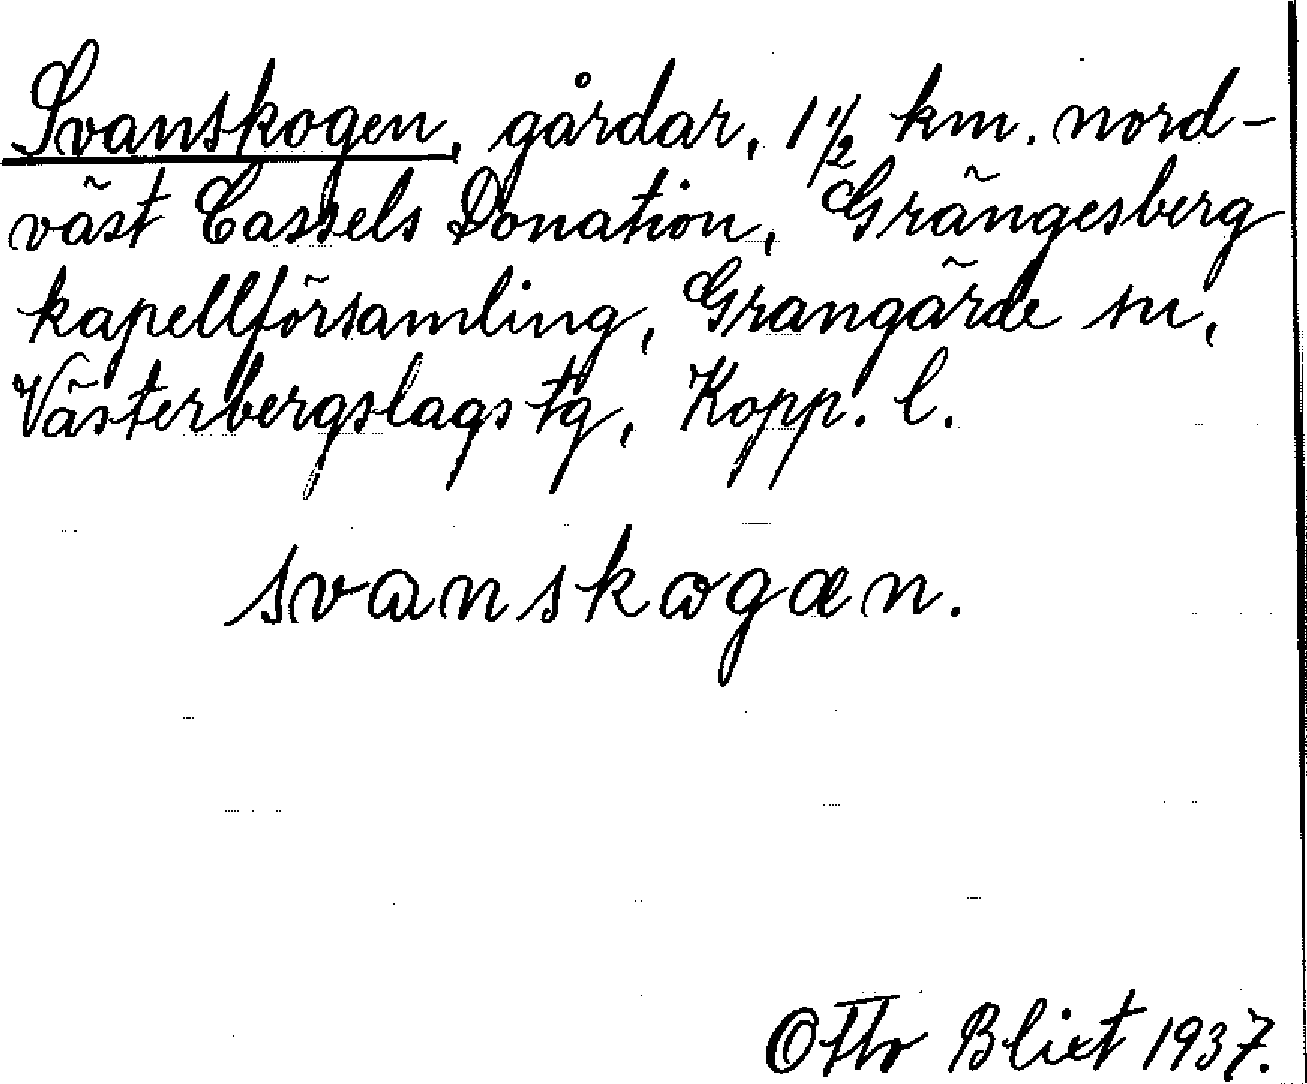 Svanskogen, gårdar, 1 1/2 km. nord-
väst Cassels Donation, Grängesberg
kapellförsamling, Grangärde sn,
Västerbergslags tg, Kopp. l.
svanskogæn.
Otto Blixt 1937.